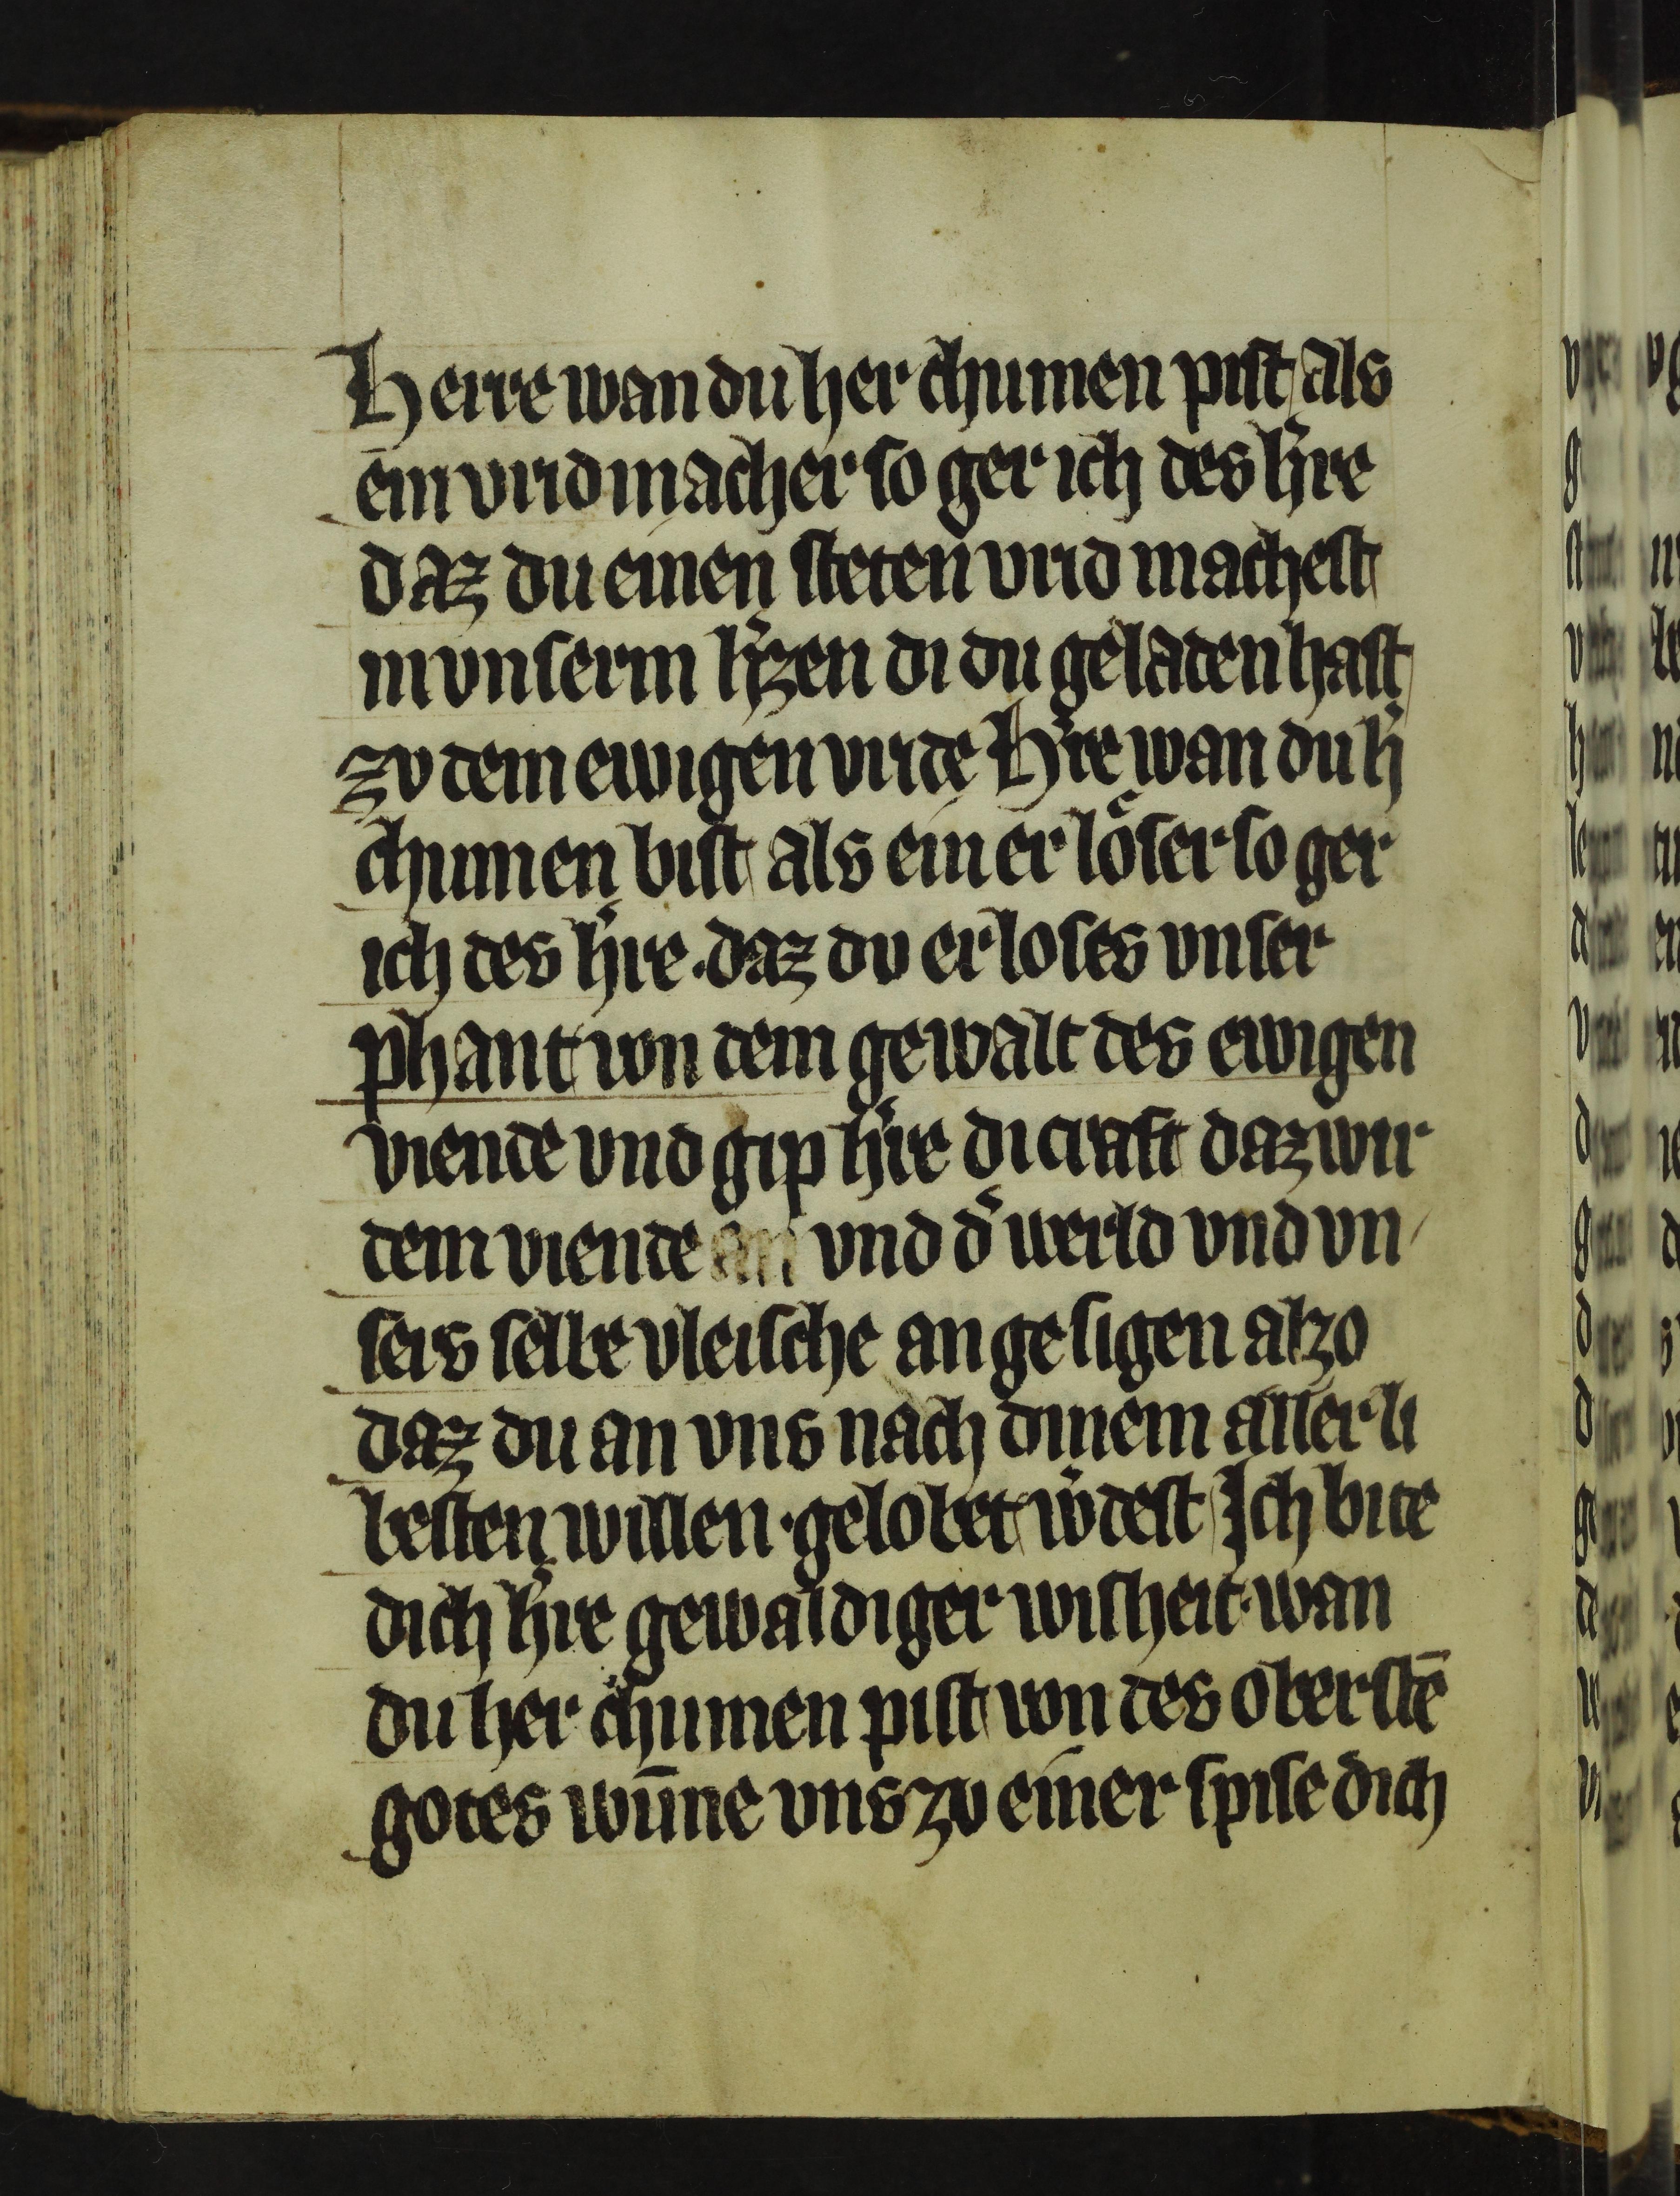 Herre wan du her chumen pist als
ein vrid macher so ger ich des h̾re
daz du einen steten vrid machest
in vnserm h̾zen di du geladen hast
zv dem ewigen vride H̾re wan du h̾
chumen bist als ein er loͤser so ger
ich des h̾re. daz dv er loses vnser
phant von dem gewalt des ewigen
viende vnd gip h̾re di craft daz wir
dem viende an vnd d̾ werld vnd vn
sers selbe vleische an gesigen alzo
daz du an vns nach dinem aller li
besten willen · gelobet w̾dest Ich bite
dich h̾re gewaldiger wisheit · wan
du her chumen pist von des oberstē
gotes wūne vns zv einer spise dich